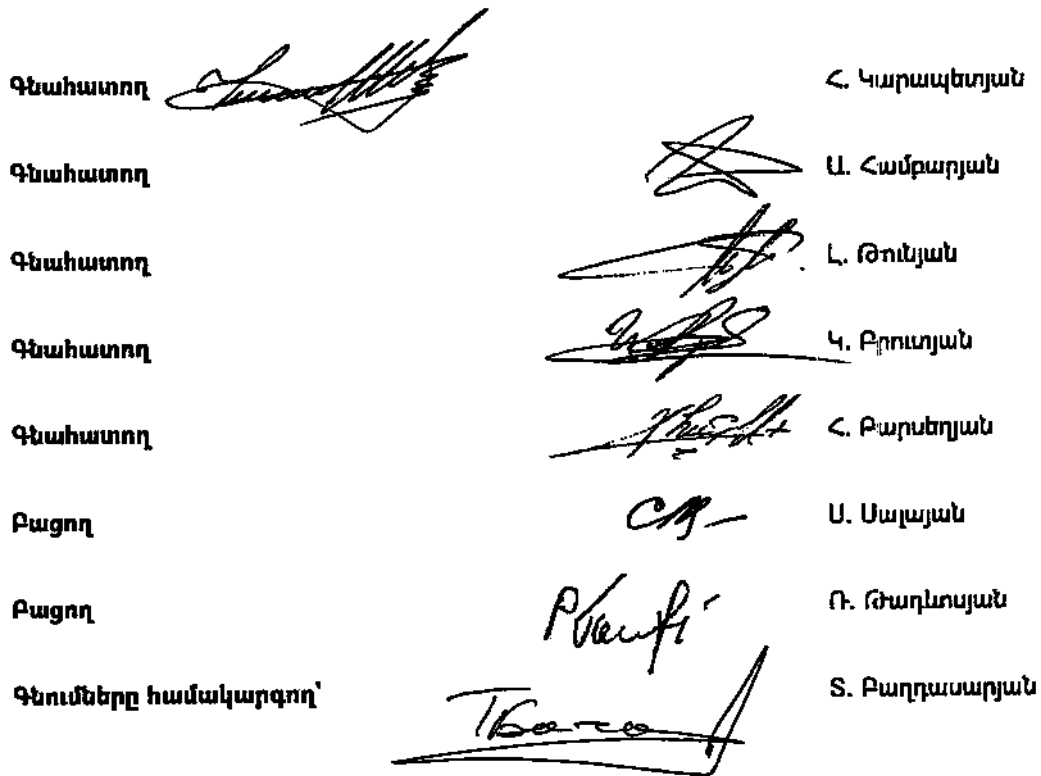 Գնահատող Հ. Կարապետյան
Գնահատող Ա. Համբարյան
Գնահատող Լ. Թունյան
Գնահատող Կ. Բրուտյան
Գնահատող Հ. Բարսեղյան
Բացող Ս. Սալայան
Բացող Ռ. Թադևոսյան
Գնումները համակարգող՝ Տ. Բաղդասարյան